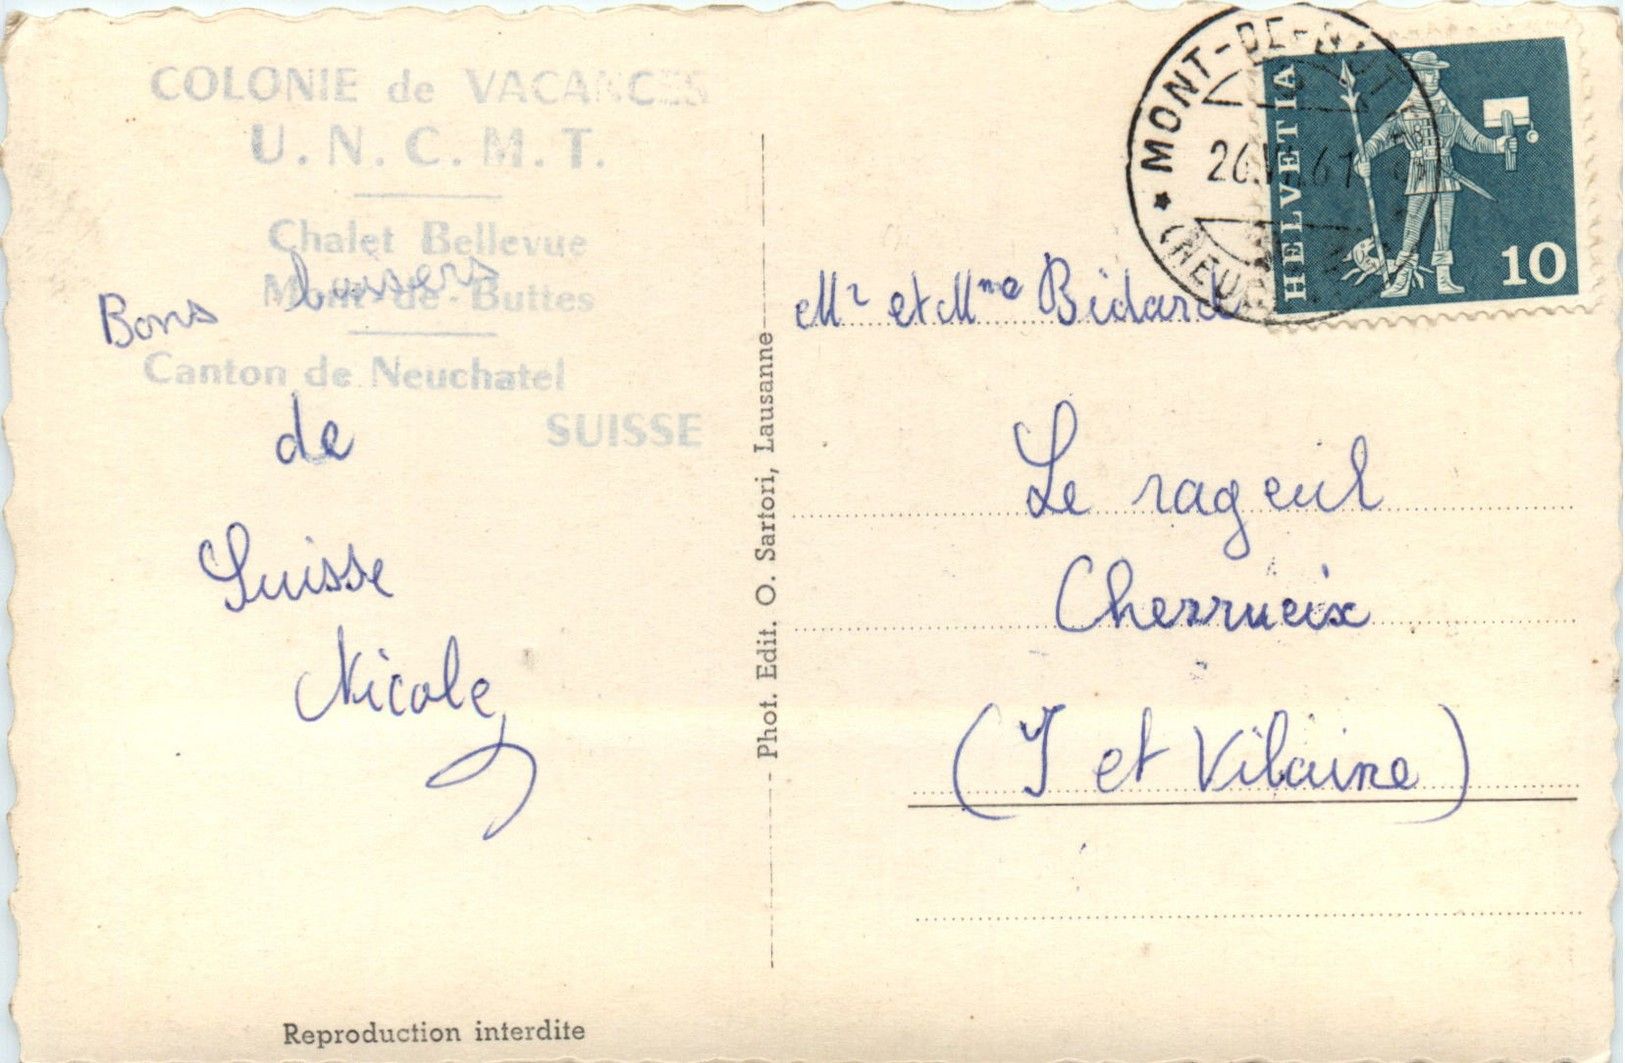 COLONIE de VACANCES
U. N. C. M. T.
Chalet Bellevue
Mont-de-Buttes
Canton de Neuchatel
SUISSE
Bons baisers
de
Suisse
Nicole
Reproduction interdite
Phot. Edit. O. Sartori, Lausanne
MONT-DE-BUT
61
(NEU
HELVETIA
10
Mr et Mme Bidard
Le rageul
Cherrueix
(I et Vilaine)